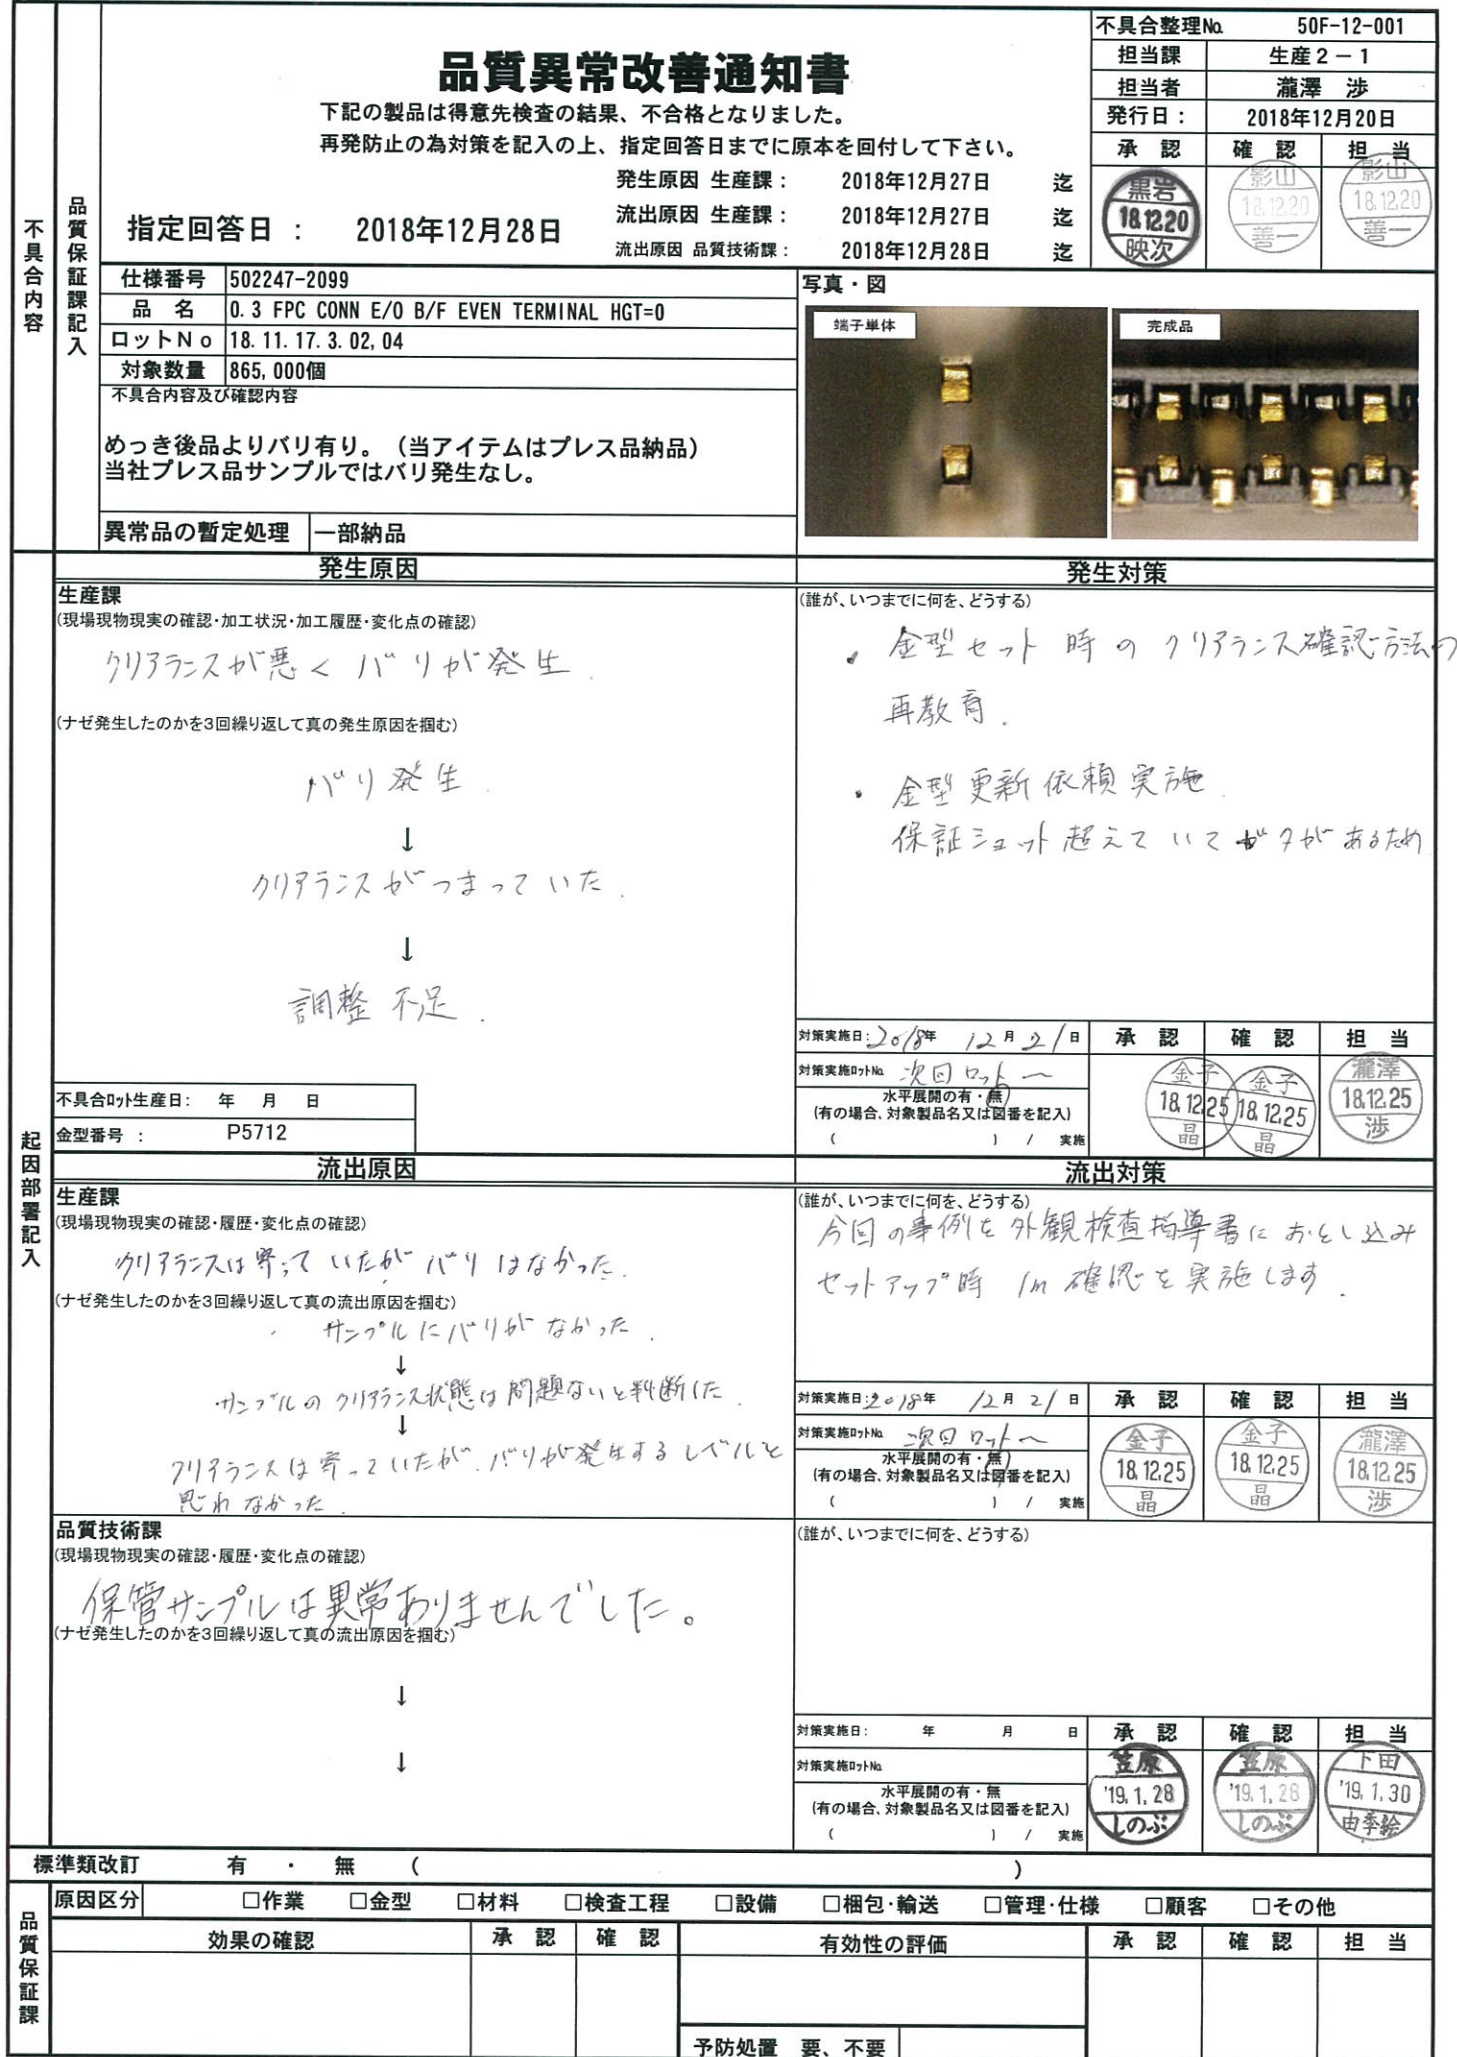 不具合整理No. 50F-12-001
担当課 生産2-1
担当者 瀧澤 渉
発行日: 2018年12月20日
承認 確認 担当
黒岩 18.12.20 映次
影山 18.12.20 善一
影山 18.12.20 善一
品質異常改善通知書
下記の製品は得意先検査の結果、不合格となりました。
再発防止の為対策を記入の上、指定回答日までに原本を回付して下さい。
発生原因 生産課: 2018年12月27日 迄
流出原因 生産課: 2018年12月27日 迄
流出原因 品質技術課: 2018年12月28日 迄
指定回答日 : 2018年12月28日
不具合内容
品質保証課記入
仕様番号 502247-2099
品名 0.3 FPC CONN E/O B/F EVEN TERMINAL HGT=0
ロットNo 18.11.17.3.02,04
対象数量 865,000個
不具合内容及び確認内容
めっき後品よりバリ有り。(当アイテムはプレス品納品)
当社プレス品サンプルではバリ発生なし。
異常品の暫定処理 一部納品
写真・図
端子単体
完成品
起因部署記入
発生原因
生産課
(現場現物現実の確認・加工状況・加工履歴・変化点の確認)
クリアランスが悪くバリが発生.
(ナゼ発生したのかを3回繰り返して真の発生原因を掴む)
バリ発生.
↓
クリアランスがつまっていた.
↓
調整不足.
不具合ロット生産日: 年 月 日
金型番号 : P5712
発生対策
(誰が、いつまでに何を、どうする)
・金型セット時のクリアランス確認方法の
再教育.
・金型更新依頼実施.
保証ショット超えていてガタがあるため
対策実施日: 2018年 12月21日
対策実施ロットNo. 次回ロット〜
水平展開の有・無
(有の場合、対象製品名又は図番を記入)
( ) / 実施
承認 確認 担当
金子 18.12.25 晶
金子 18.12.25 晶
瀧澤 18.12.25 渉
流出原因
生産課
(現場現物現実の確認・履歴・変化点の確認)
クリアランスは寄っていたがバリはなかった.
(ナゼ発生したのかを3回繰り返して真の流出原因を掴む)
サンプルにバリがなかった.
↓
サンプルのクリアランス状態は問題ないと判断した.
↓
クリアランスは寄っていたが.バリが発生するレベルと
思わなかった.
流出対策
(誰が、いつまでに何を、どうする)
今回の事例を外観検査指導書におとし込み
セットアップ時 1m確認を実施します.
対策実施日: 2018年 12月21日
対策実施ロットNo. 次回ロット〜
水平展開の有・無
(有の場合、対象製品名又は図番を記入)
( ) / 実施
承認 確認 担当
金子 18.12.25 晶
金子 18.12.25 晶
瀧澤 18.12.25 渉
品質技術課
(現場現物現実の確認・履歴・変化点の確認)
保管サンプルは異常ありませんでした。
(ナゼ発生したのかを3回繰り返して真の流出原因を掴む)
↓
↓
(誰が、いつまでに何を、どうする)
対策実施日: 年 月 日
対策実施ロットNo.
水平展開の有・無
(有の場合、対象製品名又は図番を記入)
( ) / 実施
承認 確認 担当
笠原 '19.1.28 しのぶ
笠原 '19.1.28 しのぶ
下田 '19.1.30 由季絵
標準類改訂 有 ・ 無 ( )
品質保証課
原因区分 □作業 □金型 □材料 □検査工程 □設備 □梱包・輸送 □管理・仕様 □顧客 □その他
効果の確認 承認 確認 有効性の評価 承認 確認 担当
予防処置 要、不要